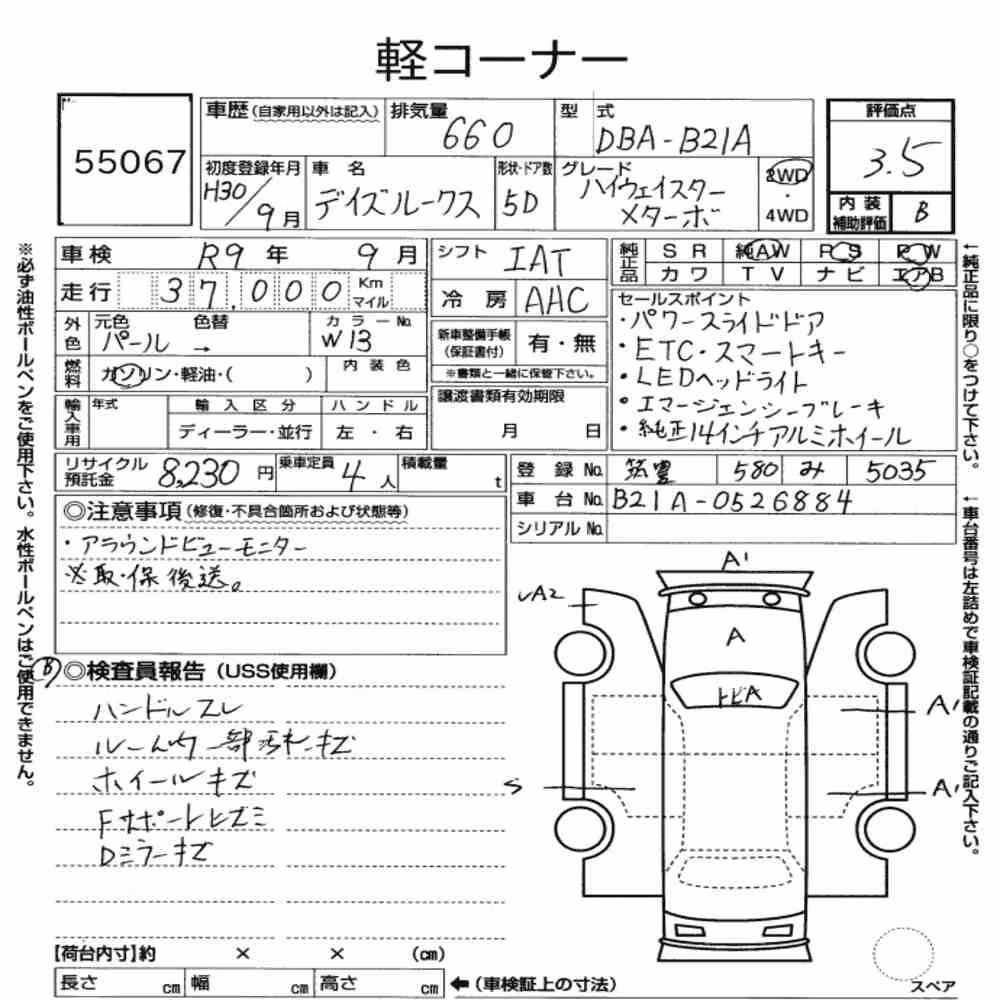 軽コーナー
55067
車歴(自家用以外は記入) 排気量 660 型式 DBA-B21A
評価点 3.5
初度登録年月 H30/9月 車名 デイズルークス 形状・ドア数 5D グレード ハイウェイスター メターボ 2WD・4WD
内装補助評価 B
車検 R9年 9月 シフト IAT
純正品 SR 純AW PS PW
カワ TV ナビ エアB
走行 37,000 Km マイル 冷房 AAC
外色 元色 パール 色替 → カラーNo. W13
新車整備手帳(保証書付) 有・無
※書類と一緒に保管下さい。
燃料 ガソリン・軽油・( ) 内装色
セールスポイント
・パワースライドドア
・ETC・スマートキー
・LEDヘッドライト
・エマージェンシーブレーキ
・純正14インチアルミホイール
輸入車用 年式 輸入区分 ハンドル
ディーラー・並行 左・右
譲渡書類有効期限
月 日
リサイクル預託金 8,230円 乗車定員 4人 積載量 t
登録No. 筑豊 580 み 5035
車台No. B21A-0526884
シリアルNo.
◎注意事項(修復・不具合箇所および状態等)
・アラウンドビューモニター
※取・保後送。
B ◎検査員報告(USS使用欄)
ハンドルスレ
ルーム内一部汚れ・キズ
ホイールキズ
Fサポートヒズミ
Dミラーキズ
A1
A2
A
トビA
A1
S
A1
【荷台内寸】約 × × (cm)
長さ cm 幅 cm 高さ cm ←(車検証上の寸法)
スペア
※必ず油性ボールペンをご使用下さい。水性ボールペンはご使用できません。
←純正品に限り○をつけて下さい。
←車台番号は左詰めで車検証記載の通りご記入下さい。